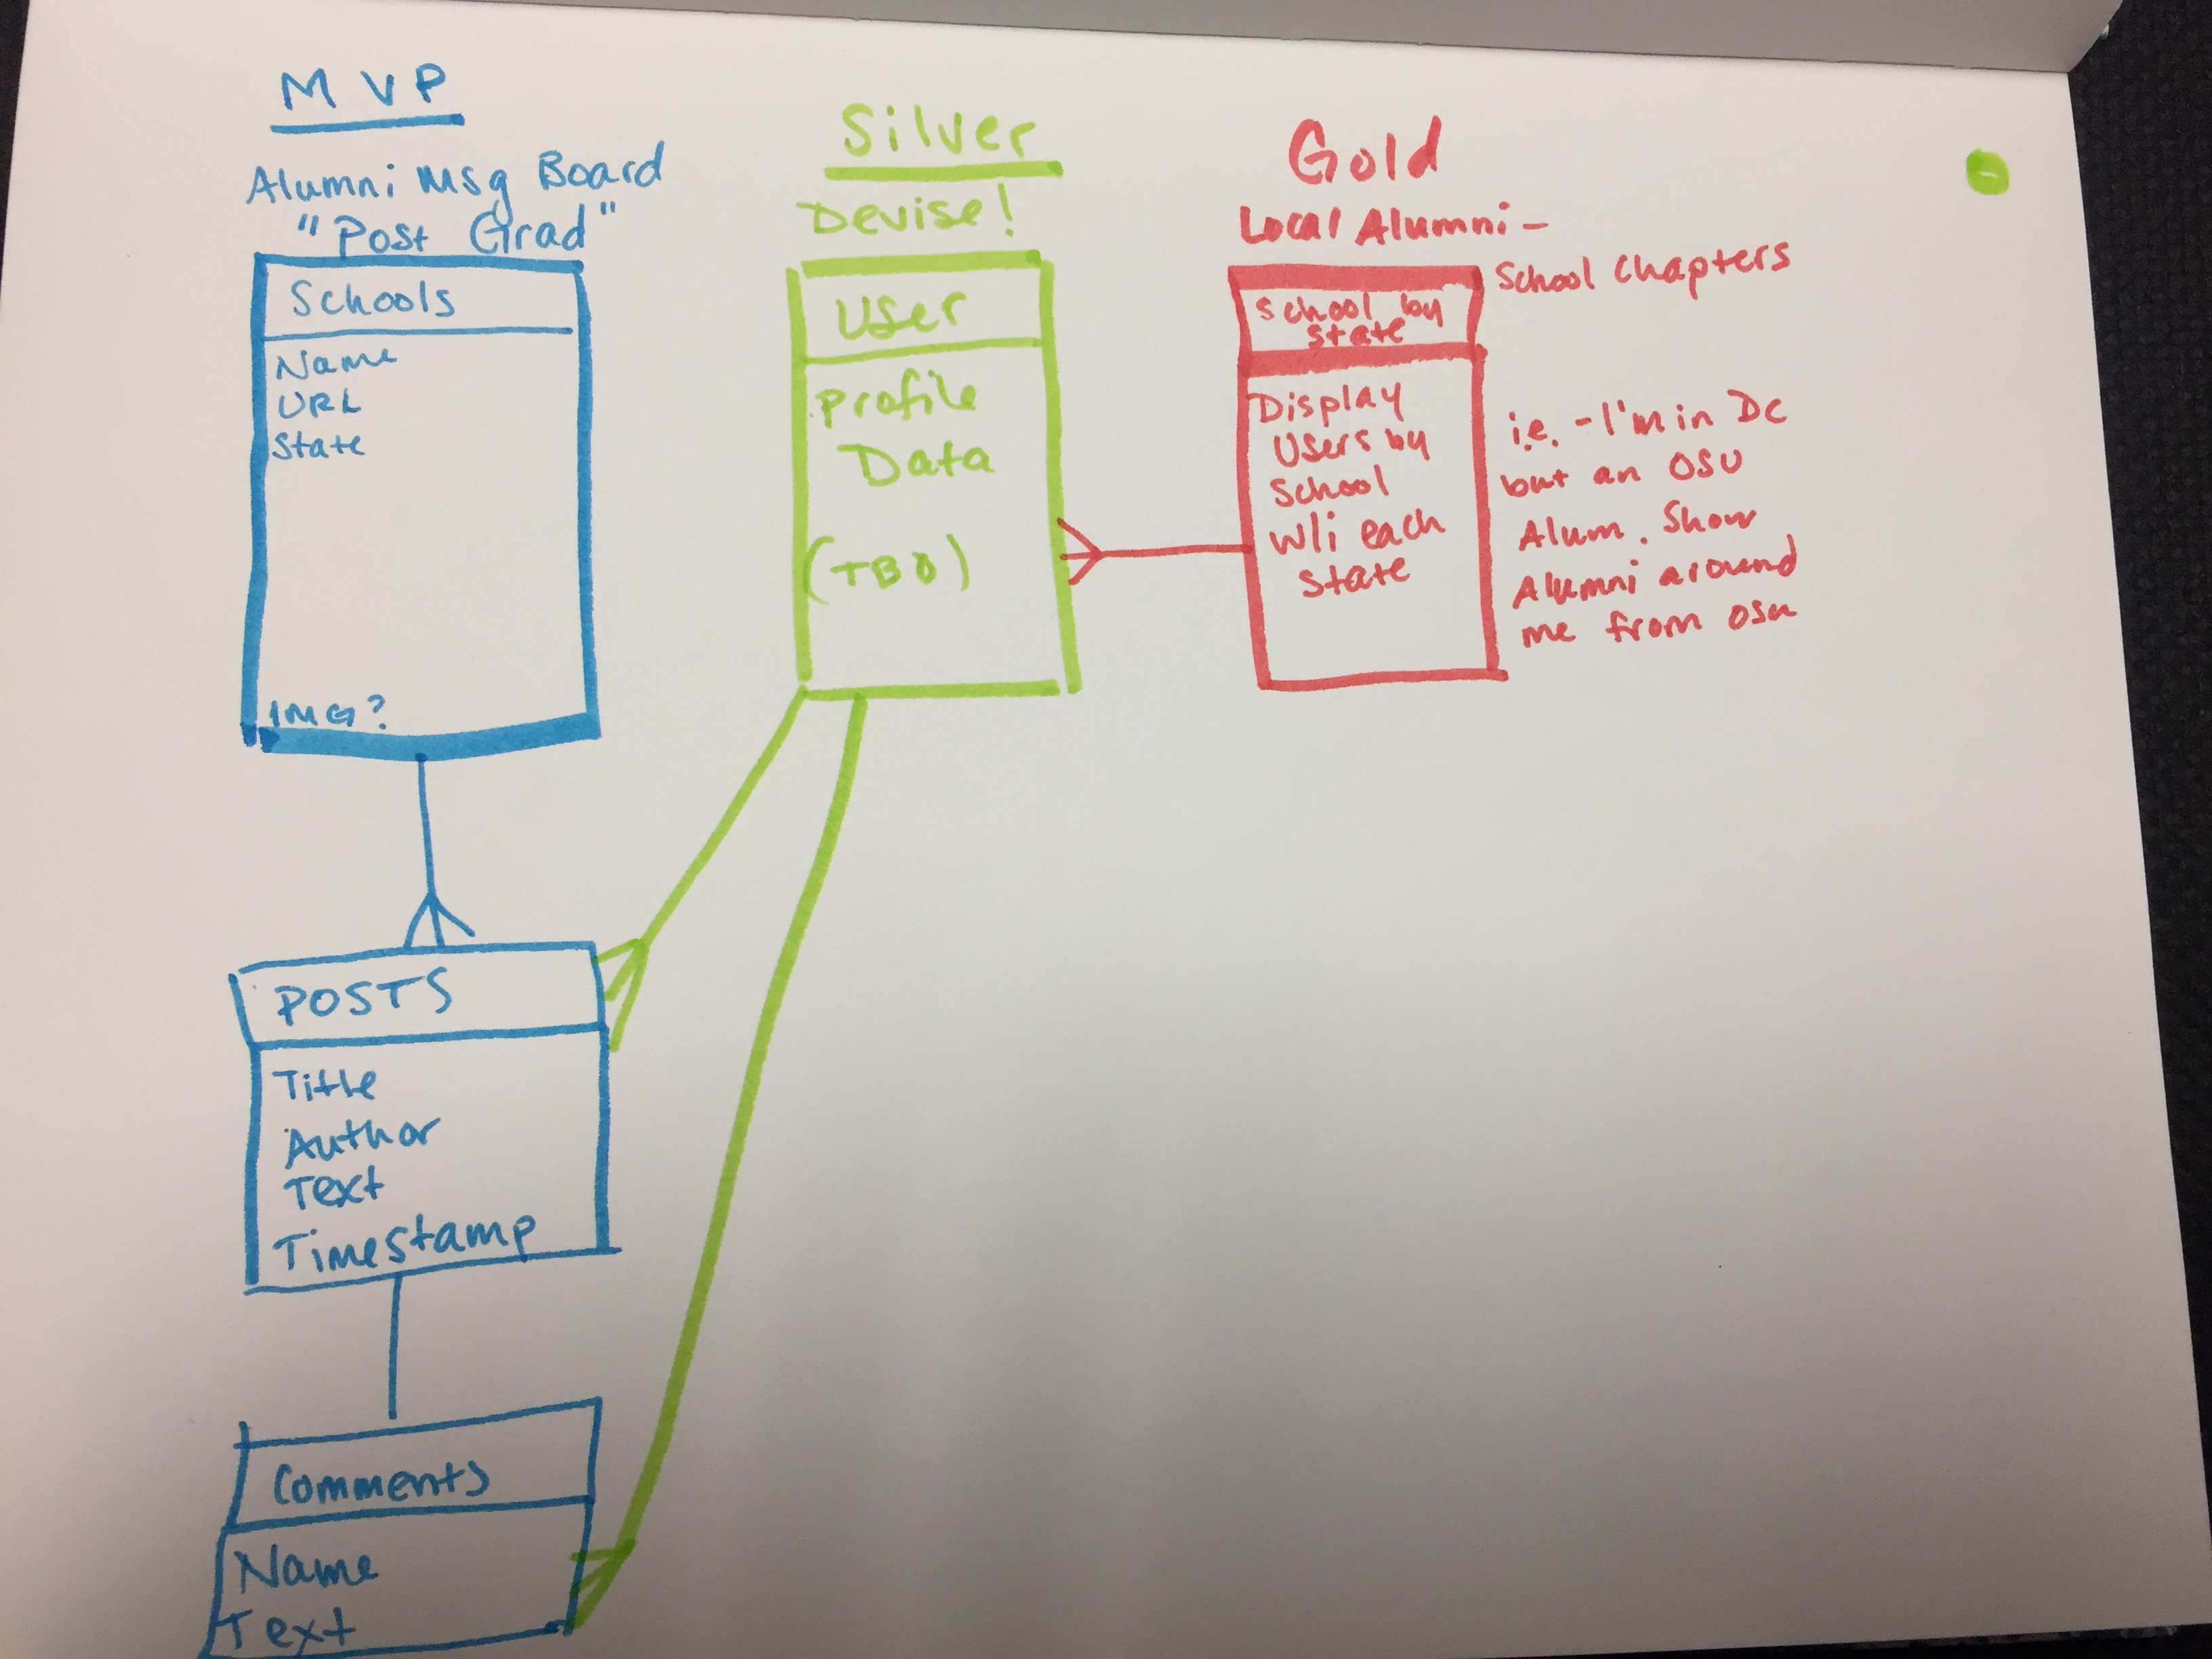 MVP
Alumni Msg Board
"Post Grad"
Schools
Name
URL
State
IMG?
POSTS
Title
Author
Text
Timestamp
Comments
Name
Text
Silver
Devise!
User
Profile
Data
(TBD)
Gold
Local Alumni -
School Chapters
School by
State
Display
Users by
School
W/i each
State
i.e. - I'm in DC
but an OSU
Alum. Show
Alumni around
me from OSU